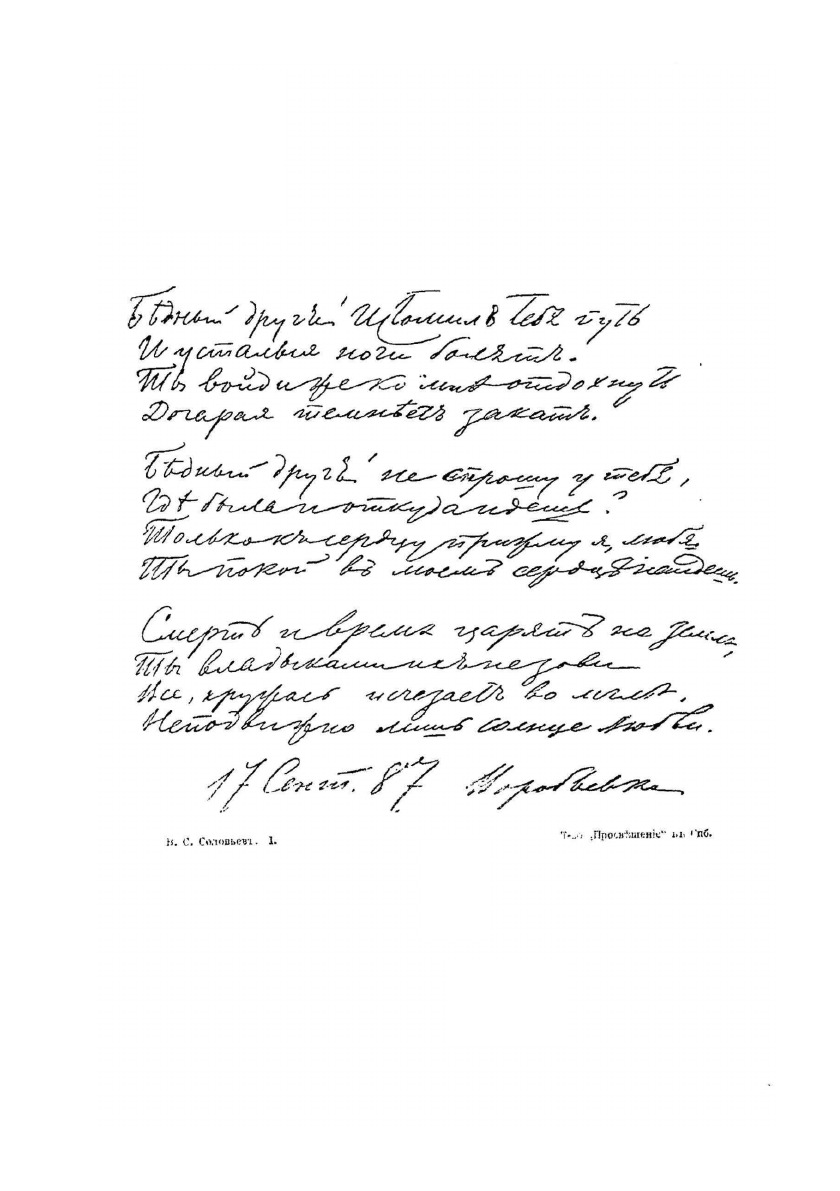 Бѣдный другъ! Истомилъ тебя путь
И усталыя ноги болятъ.
Ты войди же ко мнѣ отдохнуть
Догарая темнѣетъ закатъ.
Бѣдный другъ! не спрошу у тебя,
Гдѣ была и откуда идешь?
Только къ сердцу прижму я, любя,
Ты покой въ моемъ сердцѣ найдешь.
Смерть и время царятъ на земле,
Ты владыками ихъ не зови
Все, кружась исчезаетъ во мглѣ,
Неподвижно лишь солнце любви.
17 Сент. 87 Воробьевка
В. С. Соловьевъ. I.
Т-во „Просвѣщеніе“ въ Спб.